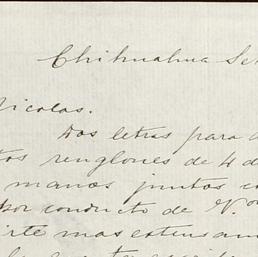 Chihuahua Se
Nicolas.
Dos letras para
tos renglones de 4 d
manos juntos co
por conducto de N.
irte mas extensam